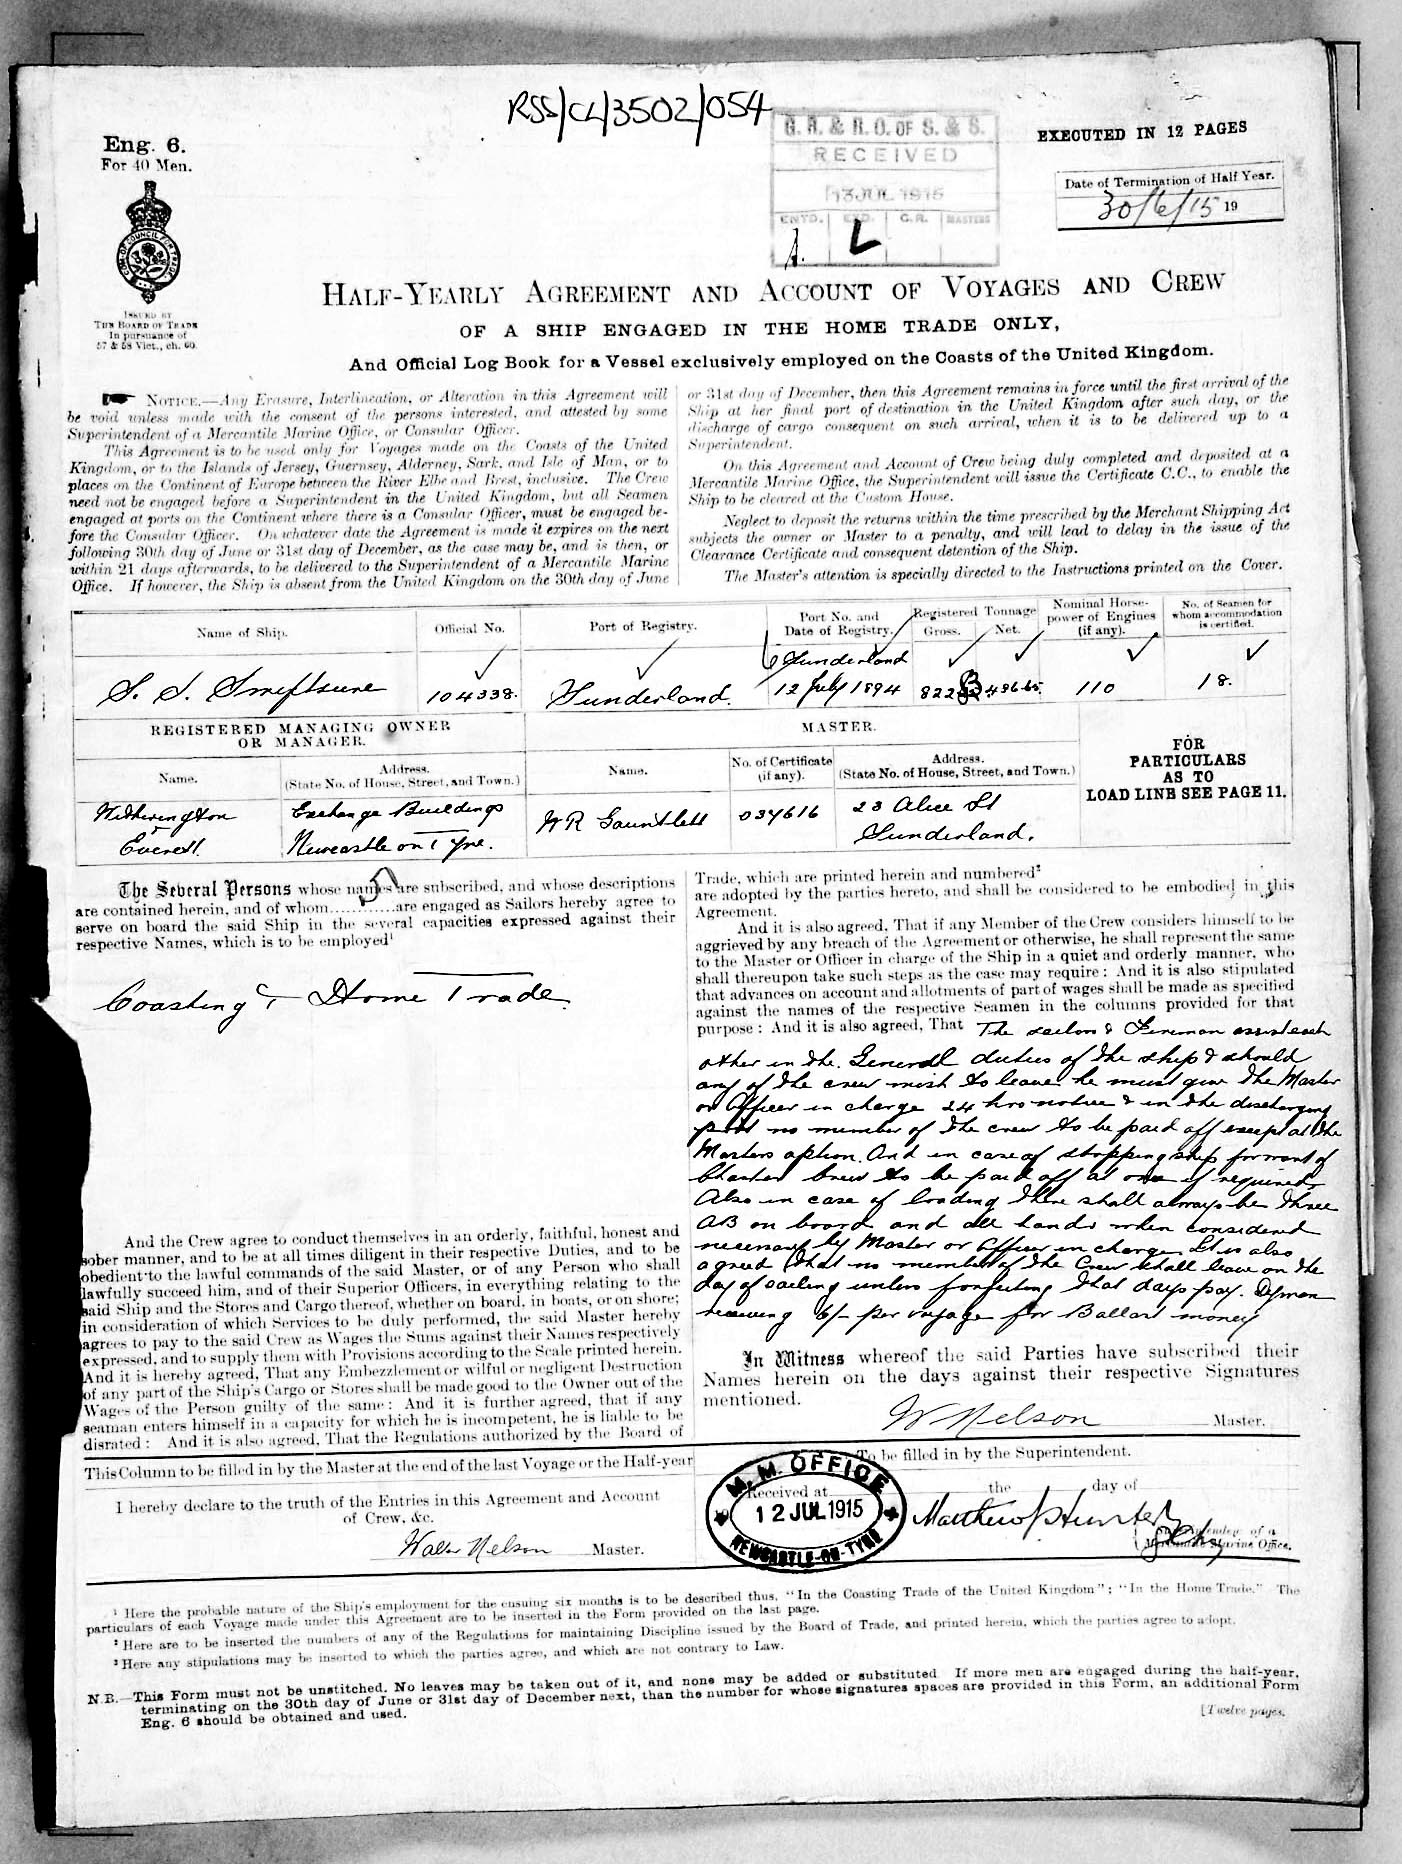 RSS/CL/3502/054
Eng. 6.
For 40 Men.
ISSUED BY
THE BOARD OF TRADE
In pursuance of
57 & 58 Vict., ch. 60.
G. R. & R. O. OF S. & S.
RECEIVED
13 JUL 1915
ENTD. G.R. MASTERS
L
EXECUTED IN 12 PAGES
Date of Termination of Half Year.
30/6/15 19
HALF-YEARLY AGREEMENT AND ACCOUNT OF VOYAGES AND CREW
OF A SHIP ENGAGED IN THE HOME TRADE ONLY,
And Official Log Book for a Vessel exclusively employed on the Coasts of the United Kingdom.
NOTICE.—Any Erasure, Interlineation, or Alteration in this Agreement will
be void unless made with the consent of the persons interested, and attested by some
Superintendent of a Mercantile Marine Office, or Consular Officer.
This Agreement is to be used only for Voyages made on the Coasts of the United
Kingdom, or to the Islands of Jersey, Guernsey, Alderney, Sark, and Isle of Man, or to
places on the Continent of Europe between the River Elbe and Brest, inclusive. The Crew
need not be engaged before a Superintendent in the United Kingdom, but all Seamen
engaged at ports on the Continent where there is a Consular Officer, must be engaged be-
fore the Consular Officer. On whatever date the Agreement is made it expires on the next
following 30th day of June or 31st day of December, as the case may be, and is then, or
within 21 days afterwards, to be delivered to the Superintendent of a Mercantile Marine
Office. If however, the Ship is absent from the United Kingdom on the 30th day of June
or 31st day of December, then this Agreement remains in force until the first arrival of the
Ship at her final port of destination in the United Kingdom after such day, or the
discharge of cargo consequent on such arrival, when it is to be delivered up to a
Superintendent.
On this Agreement and Account of Crew being duly completed and deposited at a
Mercantile Marine Office, the Superintendent will issue the Certificate C.C., to enable the
Ship to be cleared at the Custom House.
Neglect to deposit the returns within the time prescribed by the Merchant Shipping Act
subjects the owner or Master to a penalty, and will lead to delay in the issue of the
Clearance Certificate and consequent detention of the Ship.
The Master's attention is specially directed to the Instructions printed on the Cover.
Name of Ship. Official No. Port of Registry. Port No. and Date of Registry. Registered Tonnage Gross. Net. Nominal Horse-power of Engines (if any). No. of Seamen for whom accommodation is certified.
S. S. Swiftsure 104338. Sunderland. 6 Sunderland 12 July 1894 822 496.65 110 18.
REGISTERED MANAGING OWNER
OR MANAGER.
MASTER.
Name. Address. (State No. of House, Street, and Town.) Name. No. of Certificate (if any). Address. (State No. of House, Street, and Town.)
FOR
PARTICULARS
AS TO
LOAD LINE SEE PAGE 11.
Witherington Exchange Buildings W R Gauntlett 034616 23 Alice St
& Everett. Newcastle on Tyne. Sunderland.
The Several Persons whose names are subscribed, and whose descriptions
are contained herein, and of whom 5 are engaged as Sailors hereby agree to
serve on board the said Ship in the several capacities expressed against their
respective Names, which is to be employed¹
Coasting & Home Trade
And the Crew agree to conduct themselves in an orderly, faithful, honest and
sober manner, and to be at all times diligent in their respective Duties, and to be
obedient to the lawful commands of the said Master, or of any Person who shall
lawfully succeed him, and of their Superior Officers, in everything relating to the
said Ship and the Stores and Cargo thereof, whether on board, in boats, or on shore;
in consideration of which Services to be duly performed, the said Master hereby
agrees to pay to the said Crew as Wages the Sums against their Names respectively
expressed, and to supply them with Provisions according to the Scale printed herein.
And it is hereby agreed, That any Embezzlement or wilful or negligent Destruction
of any part of the Ship's Cargo or Stores shall be made good to the Owner out of the
Wages of the Person guilty of the same: And it is further agreed, that if any
seaman enters himself in a capacity for which he is incompetent, he is liable to be
disrated: And it is also agreed, That the Regulations authorized by the Board of
Trade, which are printed herein and numbered²
are adopted by the parties hereto, and shall be considered to be embodied in this
Agreement.
And it is also agreed, That if any Member of the Crew considers himself to be
aggrieved by any breach of the Agreement or otherwise, he shall represent the same
to the Master or Officer in charge of the Ship in a quiet and orderly manner, who
shall thereupon take such steps as the case may require: And it is also stipulated
that advances on account and allotments of part of wages shall be made as specified
against the names of the respective Seamen in the columns provided for that
purpose: And it is also agreed, That The sailors & Firemen assist each
other in the General duties of the ship & should
any of the crew wish to leave he must give the Master
or Officer in charge 24 hrs notice & in the discharging
port no member of the crew to be paid off except at the
Masters option. And in case of stopping ship for want of
Charter crew to be paid off at once if required.
Also in case of loading there shall always be three
AB on board and all hands when considered
necessary by Master or Officer in charge It is also
agreed that no member of the Crew shall leave on the
day of sailing unless forfeiting that days pay.
receiving 6/- per voyage for Ballast money
In Witness whereof the said Parties have subscribed their
Names herein on the days against their respective Signatures
mentioned.
W Nelson Master.
This Column to be filled in by the Master at the end of the last Voyage or the Half-year
I hereby declare to the truth of the Entries in this Agreement and Account
of Crew, &c.
Walter Nelson Master.
To be filled in by the Superintendent.
Received at the day of
M. M. OFFICE
12 JUL 1915
NEWCASTLE-ON-TYNE
Matthew J Hunter
Superintendent of a
Mercantile Marine Office.
¹ Here the probable nature of the Ship's employment for the ensuing six months is to be described thus, "In the Coasting Trade of the United Kingdom"; "In the Home Trade." The
particulars of each Voyage made under this Agreement are to be inserted in the Form provided on the last page.
² Here are to be inserted the numbers of any of the Regulations for maintaining Discipline issued by the Board of Trade, and printed herein, which the parties agree to adopt.
³ Here any stipulations may be inserted to which the parties agree, and which are not contrary to Law.
N.B.—This Form must not be unstitched. No leaves may be taken out of it, and none may be added or substituted. If more men are engaged during the half-year,
terminating on the 30th day of June or 31st day of December next, than the number for whose signatures spaces are provided in this Form, an additional Form
Eng. 6 should be obtained and used.
[Twelve pages.